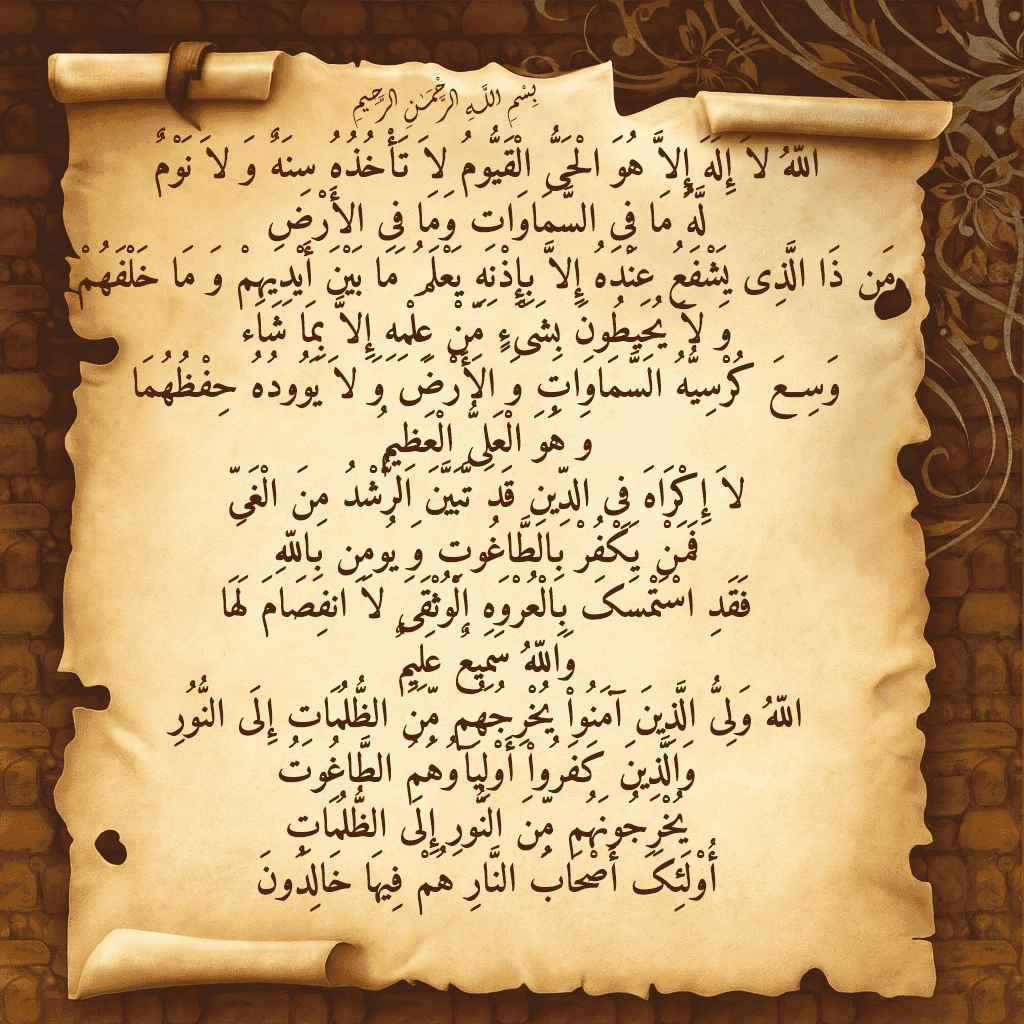 بِسْمِ اللَّـهِ الرَّحْمَـٰنِ الرَّحِيمِ
اللّهُ لاَ إِلَهَ إِلاَّ هُوَ الْحَيُّ الْقَيُّومُ لاَ تَأْخُذُهُ سِنَهٌ وَ لاَ نَوْمٌ
لَّهُ مَا فِی السَّمَاوَاتِ وَمَا فِی الأَرْضِ
مَن ذَا الَّذِی يَشْفَعُ عِنْدَهُ إِلاَّ بِإِذْنِهِ يَعْلَمُ مَا بَيْنَ أَيْدِيهِمْ وَ مَا خَلْفَهُمْ
وَ لاَ يُحِيطُونَ بِشَیْءٍ مِّنْ عِلْمِهِ إِلاَّ بِمَا شَاء
وَسِـعَ كُرْسِيُّهُ السَّمَاوَاتِ وَ الأَرْضَ وَ لاَ يَوُودُهُ حِفْظُهُمَا
وَ هُوَ الْعَلِیُّ الْعَظِيمُ
لاَ إِكْرَاهَ فِی الدِّينِ قَد تَّبَيَّنَ الرُّشْدُ مِنَ الْغَیِّ
فَمَنْ يَكْفُرْ بِالطَّاغُوتِ وَ يُومِن بِاللّهِ
فَقَدِ اسْتَمْسَکَ بِالْعُرْوَهِ الْوُثْقَیَ لاَ انفِصَامَ لَهَا
وَاللّهُ سَمِيعٌ عَلِيمٌ
اللّهُ وَلِیُّ الَّذِينَ آمَنُواْ يُخْرِجُهُم مِّنَ الظُّلُمَاتِ إِلَی النُّوُرِ
وَالَّذِينَ كَفَرُواْ أَوْلِيَآوُهُمُ الطَّاغُوتُ
يُخْرِجُونَهُم مِّنَ النُّورِ إِلَی الظُّلُمَاتِ
أُوْلَئِکَ أَصْحَابُ النَّارِ هُمْ فِيهَا خَالِدُونَ